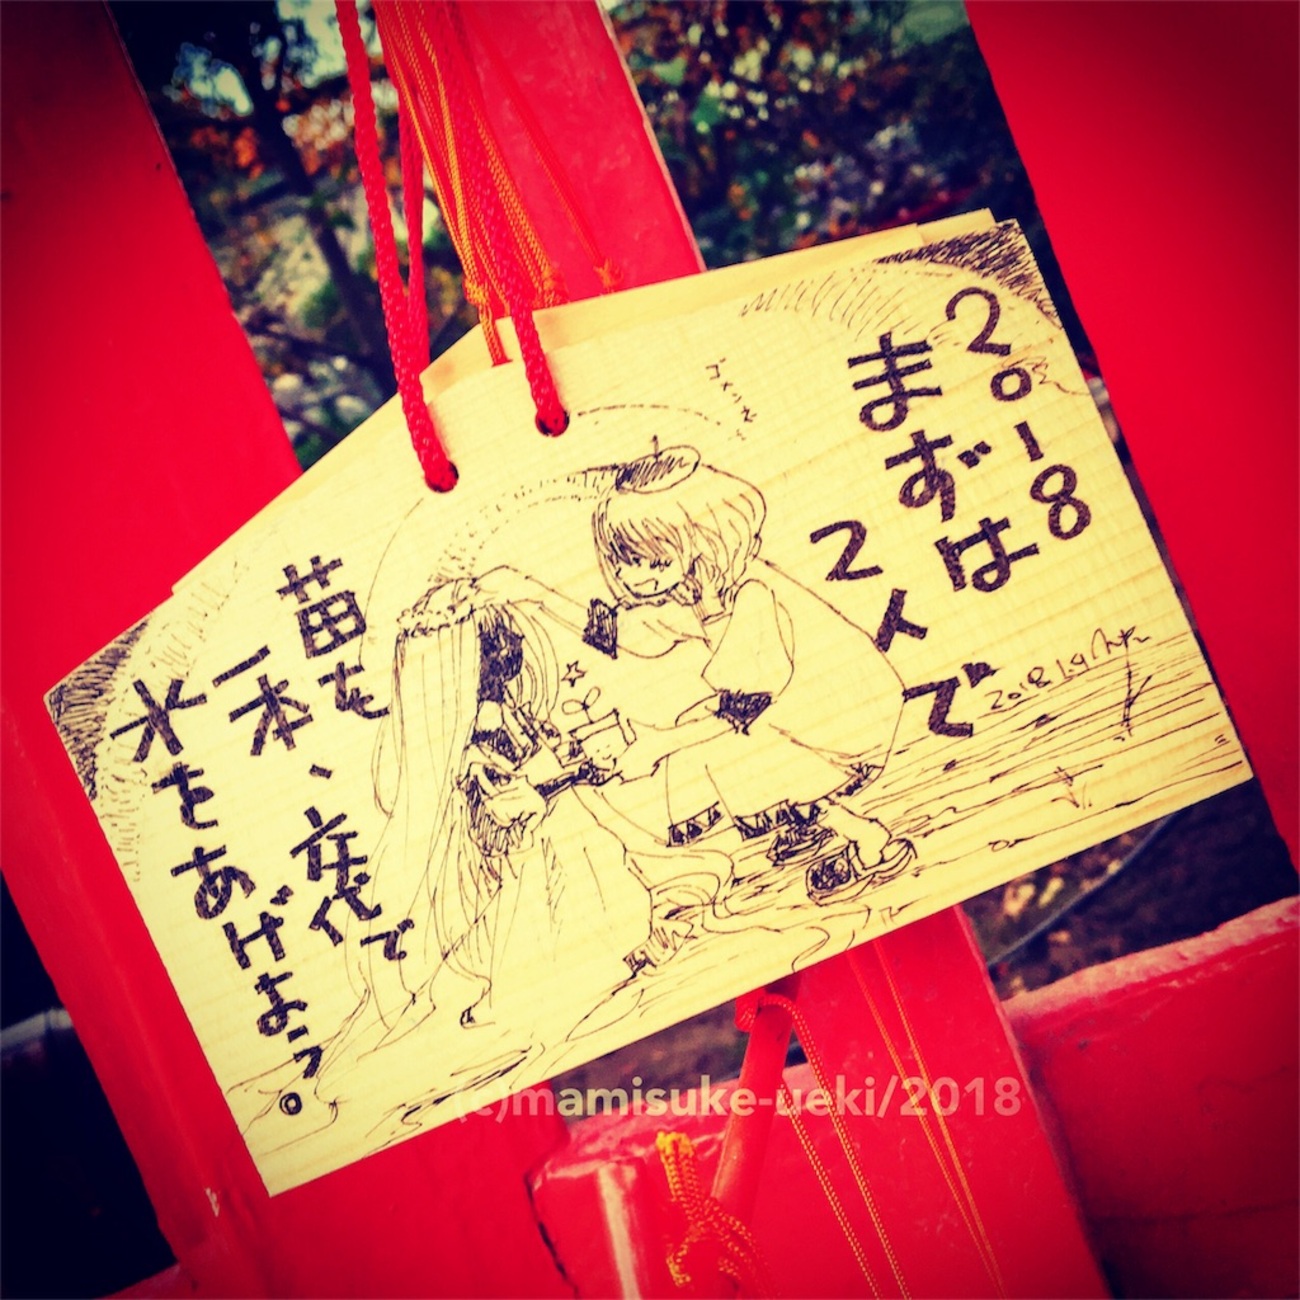 2018
まずは
2人で
苗を
一本、交代で
水をあげよう。
2018.1.9
(c)mamisuke-ueki/2018